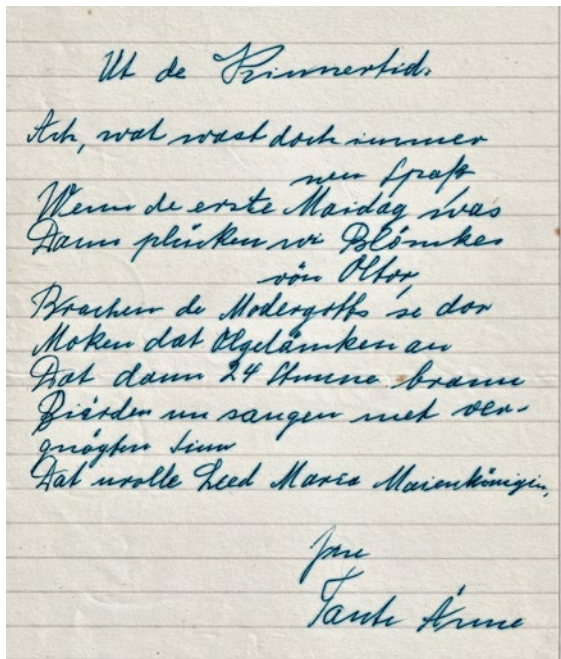 Ut de Kinnertid.
Ach, wat wast doch immer
nen Spaß
Wenn de erste Maidag was
Dann plücken wi Blömkes
vön Oltor,
Brachen de Modergotts se dor
Moken dat Olgelämken an
Dat dann 24 Stunne brann
Biärden un sangen met ver-
gnögten Sinn
Dat urolle Leed Maria Maienkönigin,
Jne
Tante Änne